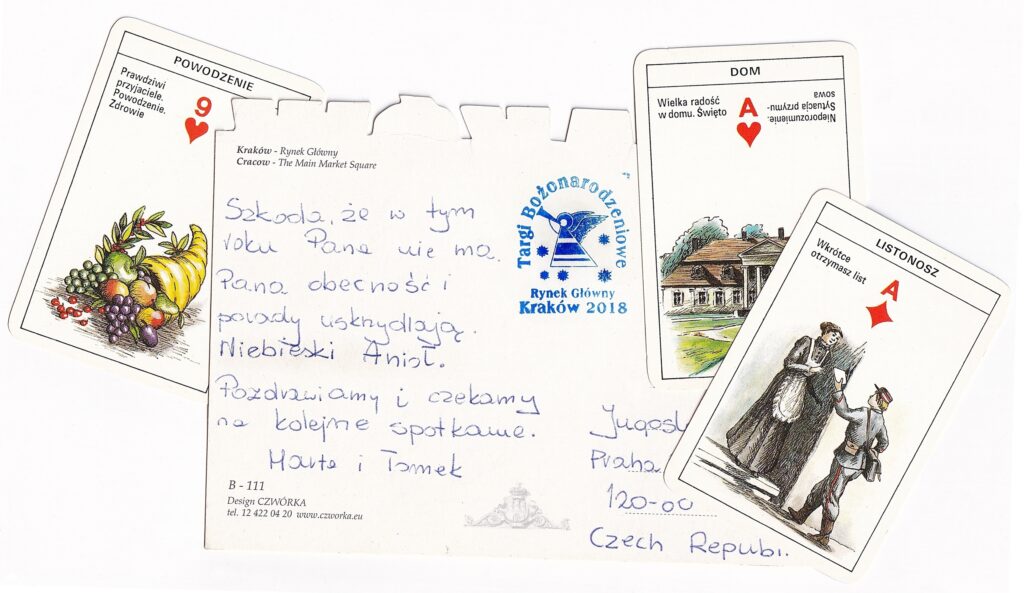 POWODZENIE
Prawdziwi
przyjaciele.
Powodzenie.
Zdrowie
9
Kraków - Rynek Główny
Cracow - The Main Market Square
Szkoda, że w tym
roku Pana nie ma.
Pana obecność i
porady uskrzydlają.
Niebieski Anioł.
Pozdrawiamy i czekamy
na kolejne spotkanie.
Marta i Tomek
B - 111
Design CZWÓRKA
tel. 12 422 04 20 www.czworka.eu
Targi Bożonarodzeniowe
Rynek Główny
Kraków 2018
Jugosl
Praha
120-00
Czech Republ.
DOM
Wielka radość
w domu. Święto
A
Nieporozumienie.
Sytuacja przymu-
sowa
LISTONOSZ
Wkrótce
otrzymasz list
A